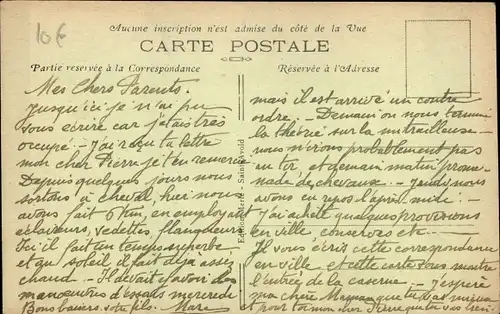 10€
Aucune inscription n'est admise du côté de la Vue
CARTE POSTALE
Partie réservée à la Correspondance
Réservée à l'Adresse
Mes Chers Parents.
Jusqu'ici je n'ai pu
vous écrire car j'étais très
occupé. – J'ai reçu ta lettre
mon cher Pierre je t'en remercie
Depuis quelques jours nous
sortons à cheval, hier nous
avons fait 6 Km, en employant
éclaireurs, vedettes, flangueurs
Ici il fait un temps superbe
et qu soleil il fait déjà assez
chaud – Il devait y avoir des
manœuvres d'essais mercredi
Bons baisers votre fils. Marc
mais il est arrivé un contre
ordre. – Demain on nous
la théorie sur la mitrailleuse –
nous n'irons probablement pas
au tir, et demain matin prome-
nade de chevaux. – Jeudi nous
avons eu repos l'après-midi. –
J'ai acheté quelques provisions
en ville conserves etc –
Je vous écris cette correspondance
en ville et cette carte vous montre
l'entrée de la caserne – J'espère
ma chère Maman que tu vas mieux
et pour ta mon cher Pierre que ta vas bien